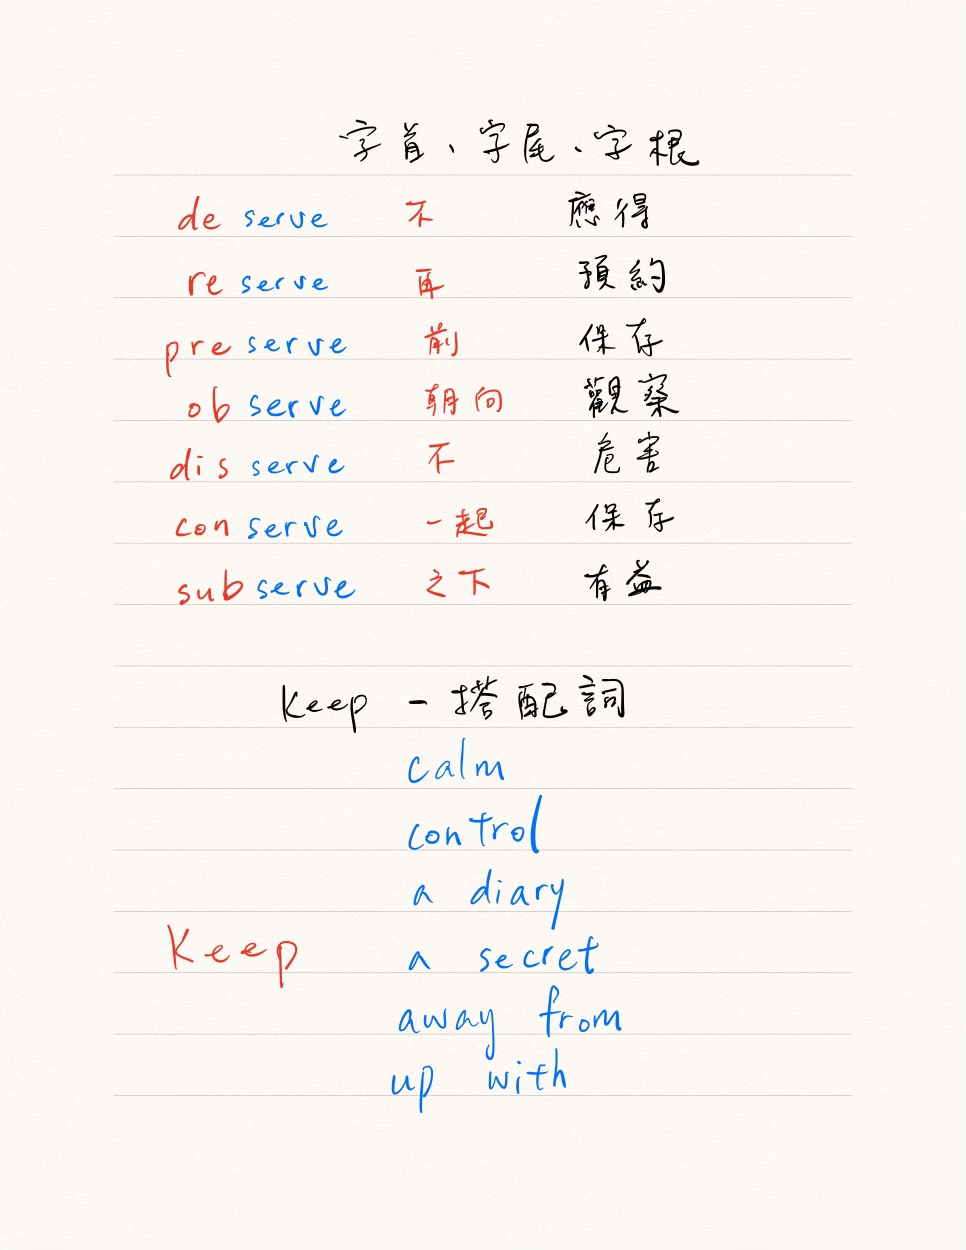 字首、字尾、字根
de serve 不 應得
re serve 再 預約
pre serve 前 保存
ob serve 朝向 觀察
dis serve 不 危害
con serve 一起 保存
sub serve 之下 有益
keep - 搭配詞
calm
control
a diary
Keep a secret
away from
up with